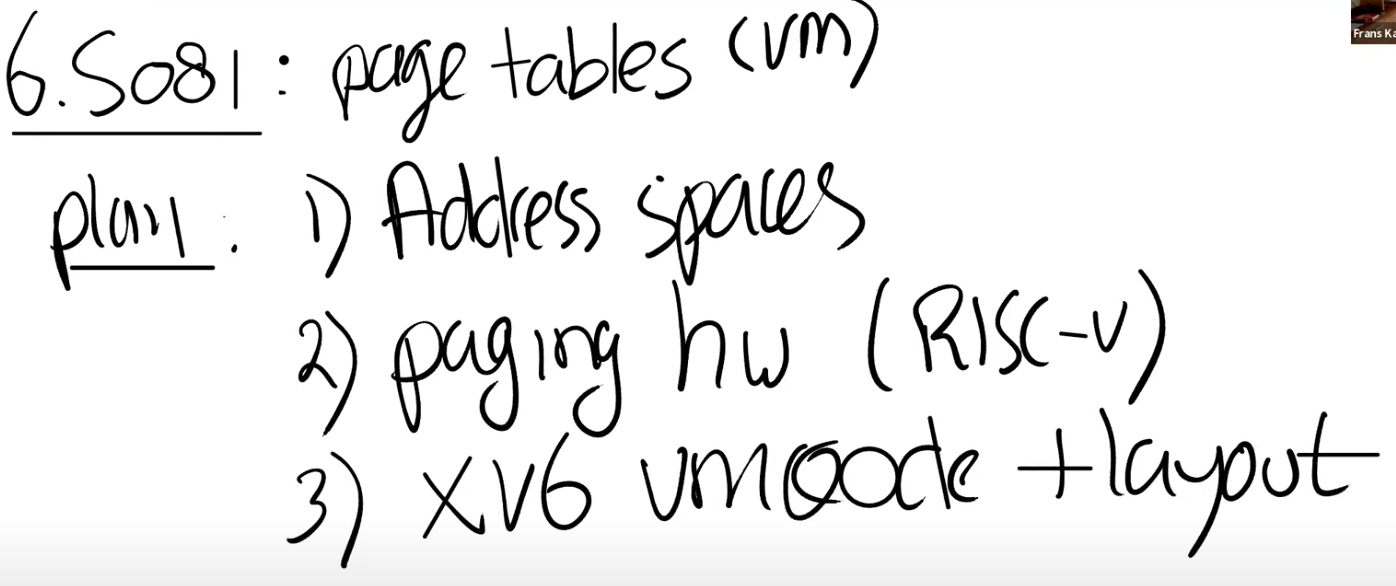 6.S081: page tables (vm)
Frans Ka
plan: 1) Address spaces
2) paging hw (RISC-V)
3) XV6 vm code + layout